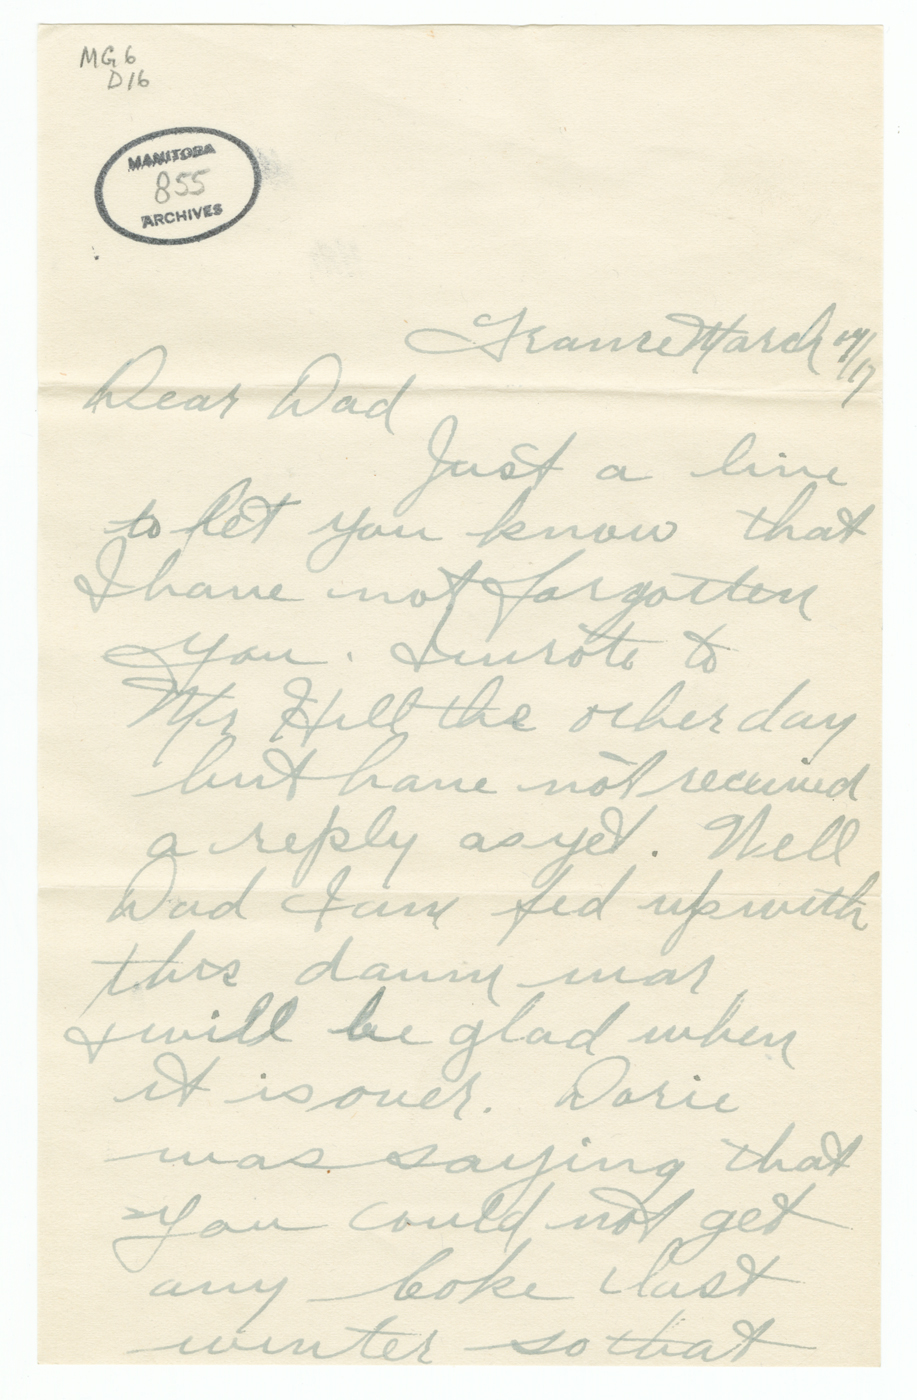 MG6
D16
MANITOBA
855
ARCHIVES
France March 17/17
Dear Dad
Just a line
to let you know that
I have not forgotten
you. I wrote to
Mr Hill the other day
but have not received
a reply as yet. Well
Dad I am fed up with
this damn war
I will be glad when
it is over. Dorie
was saying that
you could not get
any coke last
winter so that